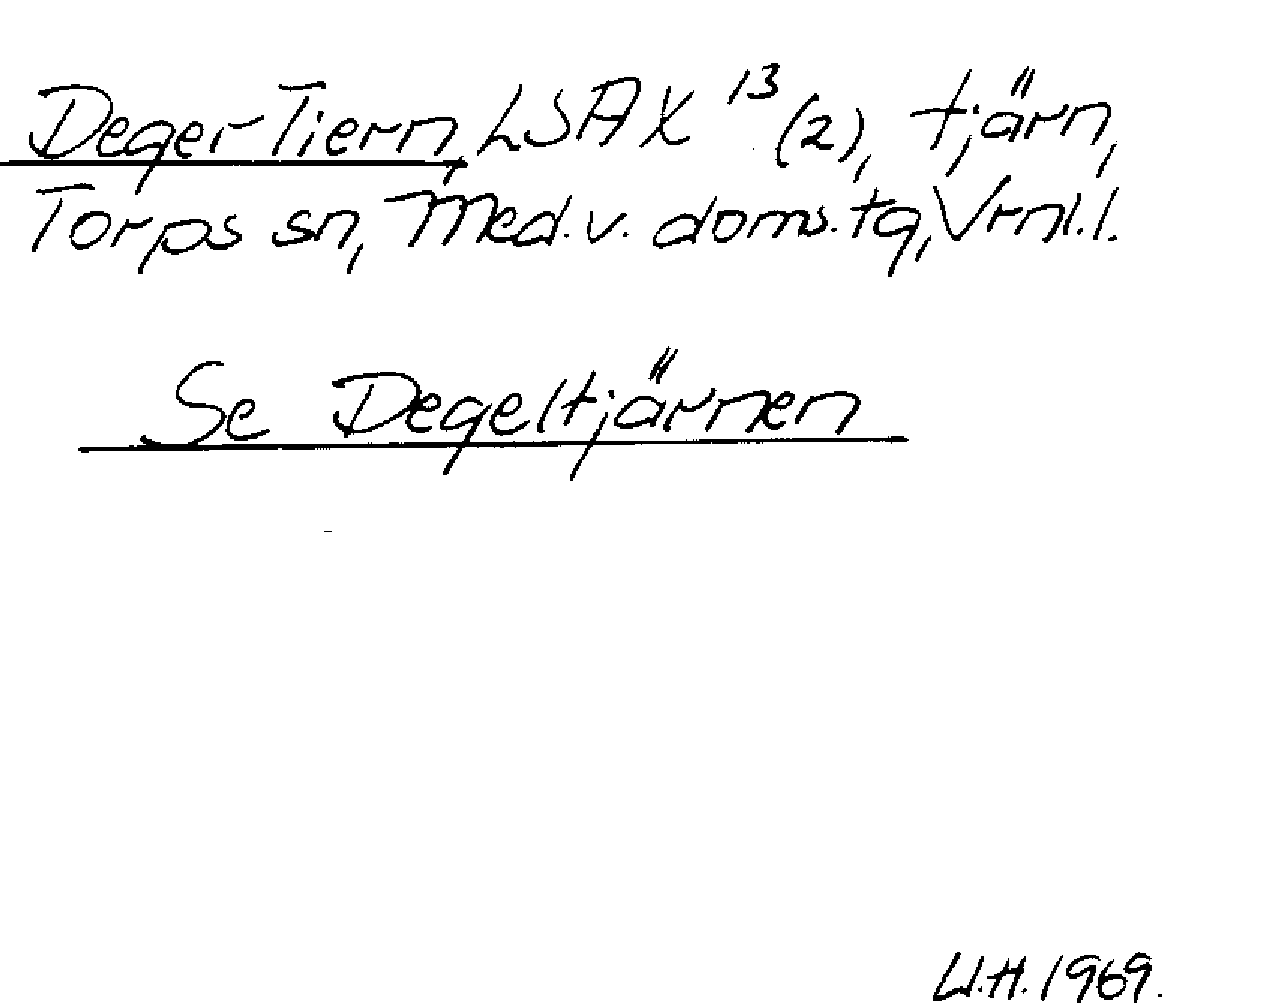 Deger Tiern, LSA X 13 (2), tjärn,
Torps sn, Med.v. doms.tg, Vrnl.l.
Se Degeltjärnen
U.H. 1969.